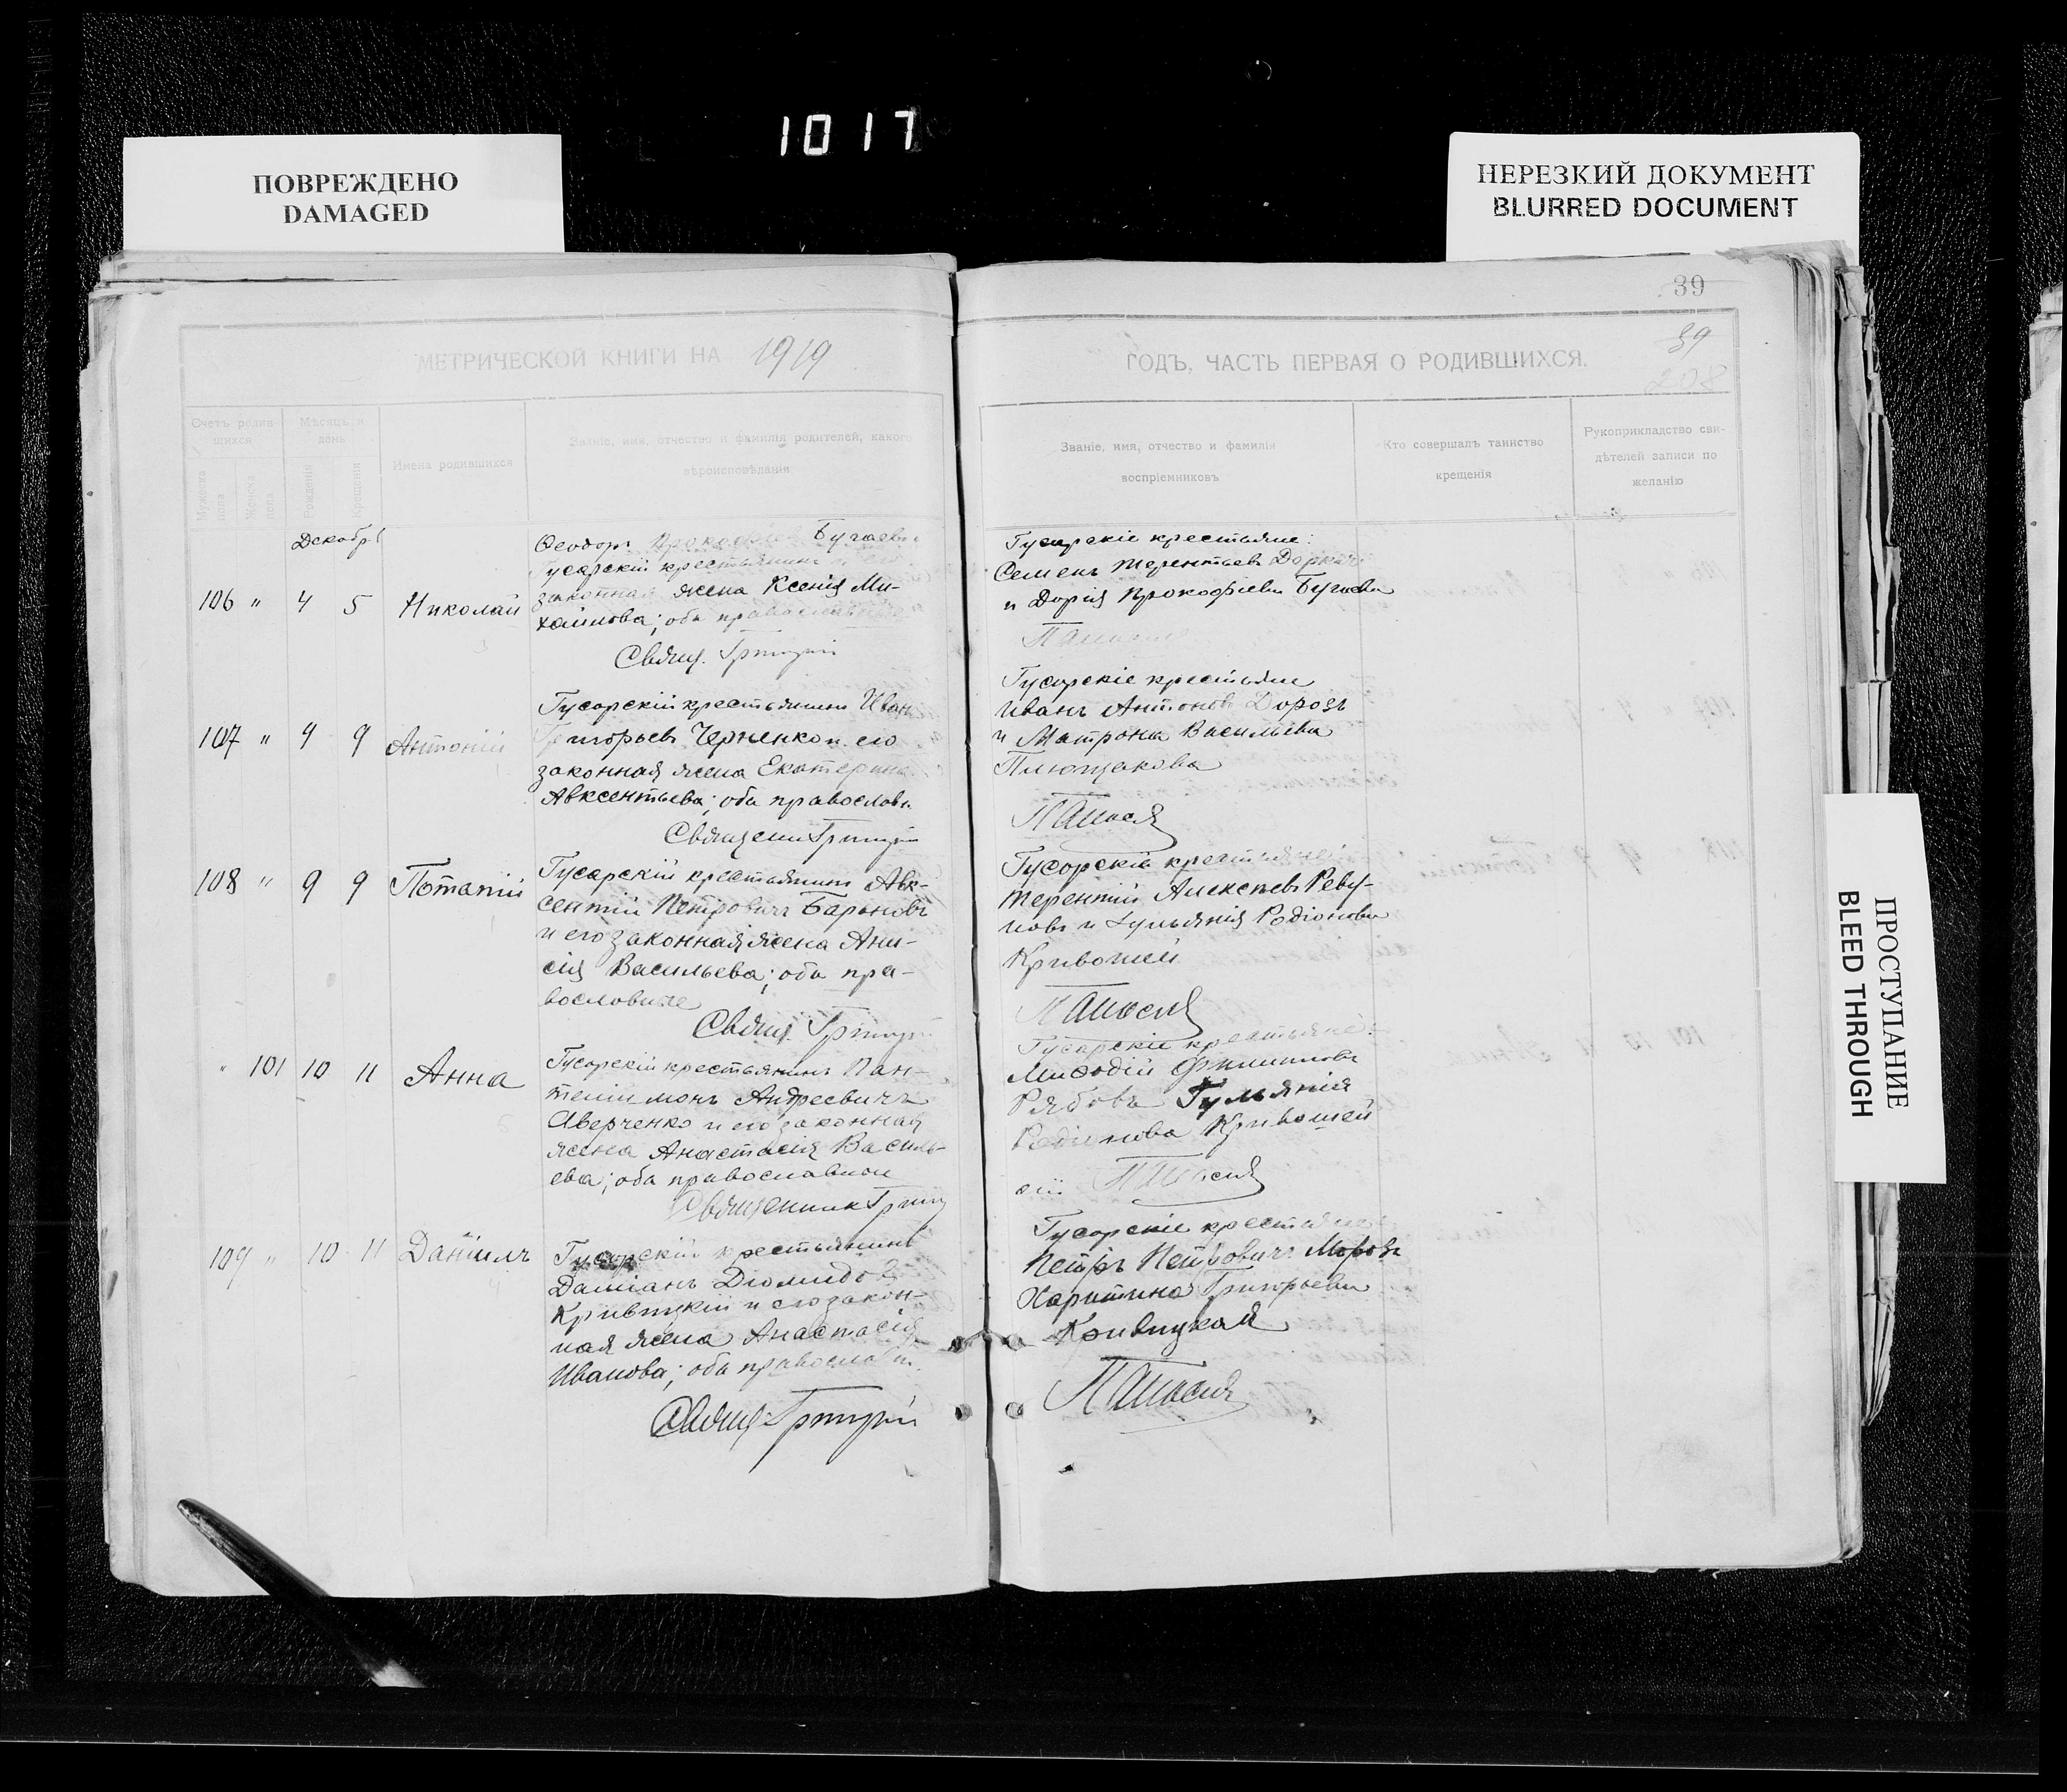 1017
ПОВРЕЖДЕНО
DAMAGED
НЕРЕЗКИЙ ДОКУМЕНТ
BLURRED DOCUMENT
39
МЕТРИЧЕСКОЙ КНИГИ НА 1919
ГОДЪ, ЧАСТЬ ПЕРВАЯ О РОДИВШИХСЯ.
39
208
Счетъ родив-
шихся
Мѣсяцъ и
день
Имена родившихся
Званіе, имя, отчество и фамилія родителей, какого
вѣроисповѣданія
Мужеска пола
Женска пола
Рожденія
Крещенія
Званіе, имя, отчество и фамилія
воспріемниковъ
Кто совершалъ таинство
крещенія
Рукоприкладство сви-
дѣтелей записи по
желанію
Декабрь
106 " 4 5 Николай
Ѳеодоръ Прокофіев Бугаевъ
Гусарскій крестьянинъ
законная жена Ксенія Ми-
хайлова; оба православные
Свящ. Григорій
Гусарскіе крестьяне:
Семенъ Терентьевъ
и Дорія Прокофіева Бугаева
107 " 9 9 Антоній
Гусарскій крестьянинъ Иванъ
Григорьевъ Черненко и его
законная жена Екатерина
Авксентьева; оба православн
Священ Григорій
Гусарскіе крестьяне
Иванъ Антоновъ Дорозъ
и Матрона Васильева
Плющакова
108 " 9 9 Потапій
Гусарскій крестьянинъ Авк-
сентій Петровичъ Барановъ
и его законная жена Ани-
сія Васильева; оба пра-
вославные
Свящ. Григорій
Гусарскіе крестьяне
Терентій Алексѣевъ Реву-
новъ и Гульянія Родіонова
Кривошей
" 101 10 11 Анна
Гусарскій крестьянинъ Пан-
телиимонъ Андреевичъ
Аверченко и его законная
жена Анастасія Василь-
ева; оба православные
Священник Григ
Гусарскіе крестьяне:
Миѳодій Филипповъ
Рябовъ Гульянія
Родіонова Кривошей
109 " 10 11 Даніилъ
Гусарскій крестьянинъ
Даміанъ Діомидовъ
Кривицкій и его закон-
ная жена Анастасія
Иванова; оба православн.
Свящ. Григорій
Гусарскіе крестьяне
Петръ Петровичъ Морозъ
Харитина Григорьева
Кривицкая
ПРОСТУПАНИЕ
BLEED THROUGH